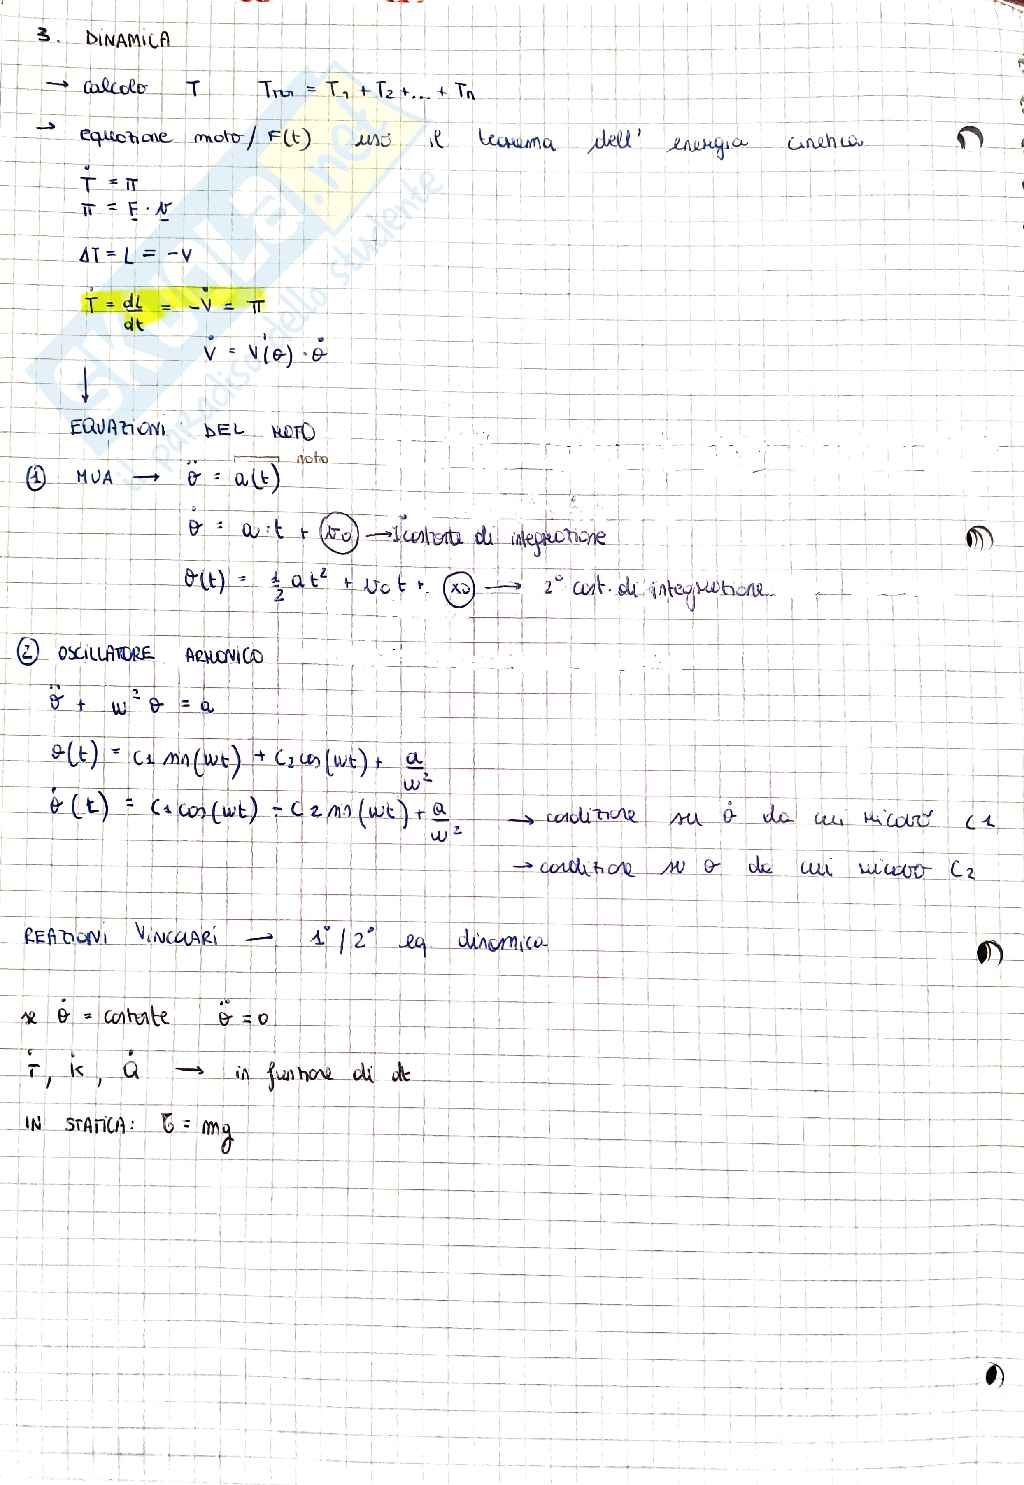 3. DINAMICA
→ calcolo T Ttot = T1 + T2 + ... + Tn
→ equazione moto / F(t) uso il teorema dell' energia cinetica
Ṫ = π
π = F · v
ΔT = L = -V
Ṫ = dL/dt = -V̇ = π
V̇ = V'(θ) · θ̇
↓
EQUAZIONI DEL MOTO
noto
① MUA → θ̈ = a(t)
θ̇ = a·t + v0 → 1° costante di integrazione
θ(t) = 1/2 at² + v0t + x0 → 2° cost. di integrazione
② OSCILLATORE ARMONICO
θ̈ + w²θ = a
θ(t) = C1 sin(wt) + C2 cos(wt) + a/w²
θ̇(t) = C1 cos(wt) - C2 sin(wt) + a/w² → condizione su θ̇ da cui ricavo C1
→ condizione su θ da cui ricavo C2
REAZIONI VINCOLARI → 1°/2° eq dinamica
se θ̇ = costante θ̈ = 0
Ṫ, K̇, Q̇ → in funzione di dt
IN STATICA: = mg
SKUOLA.net
il paradiso dello studente